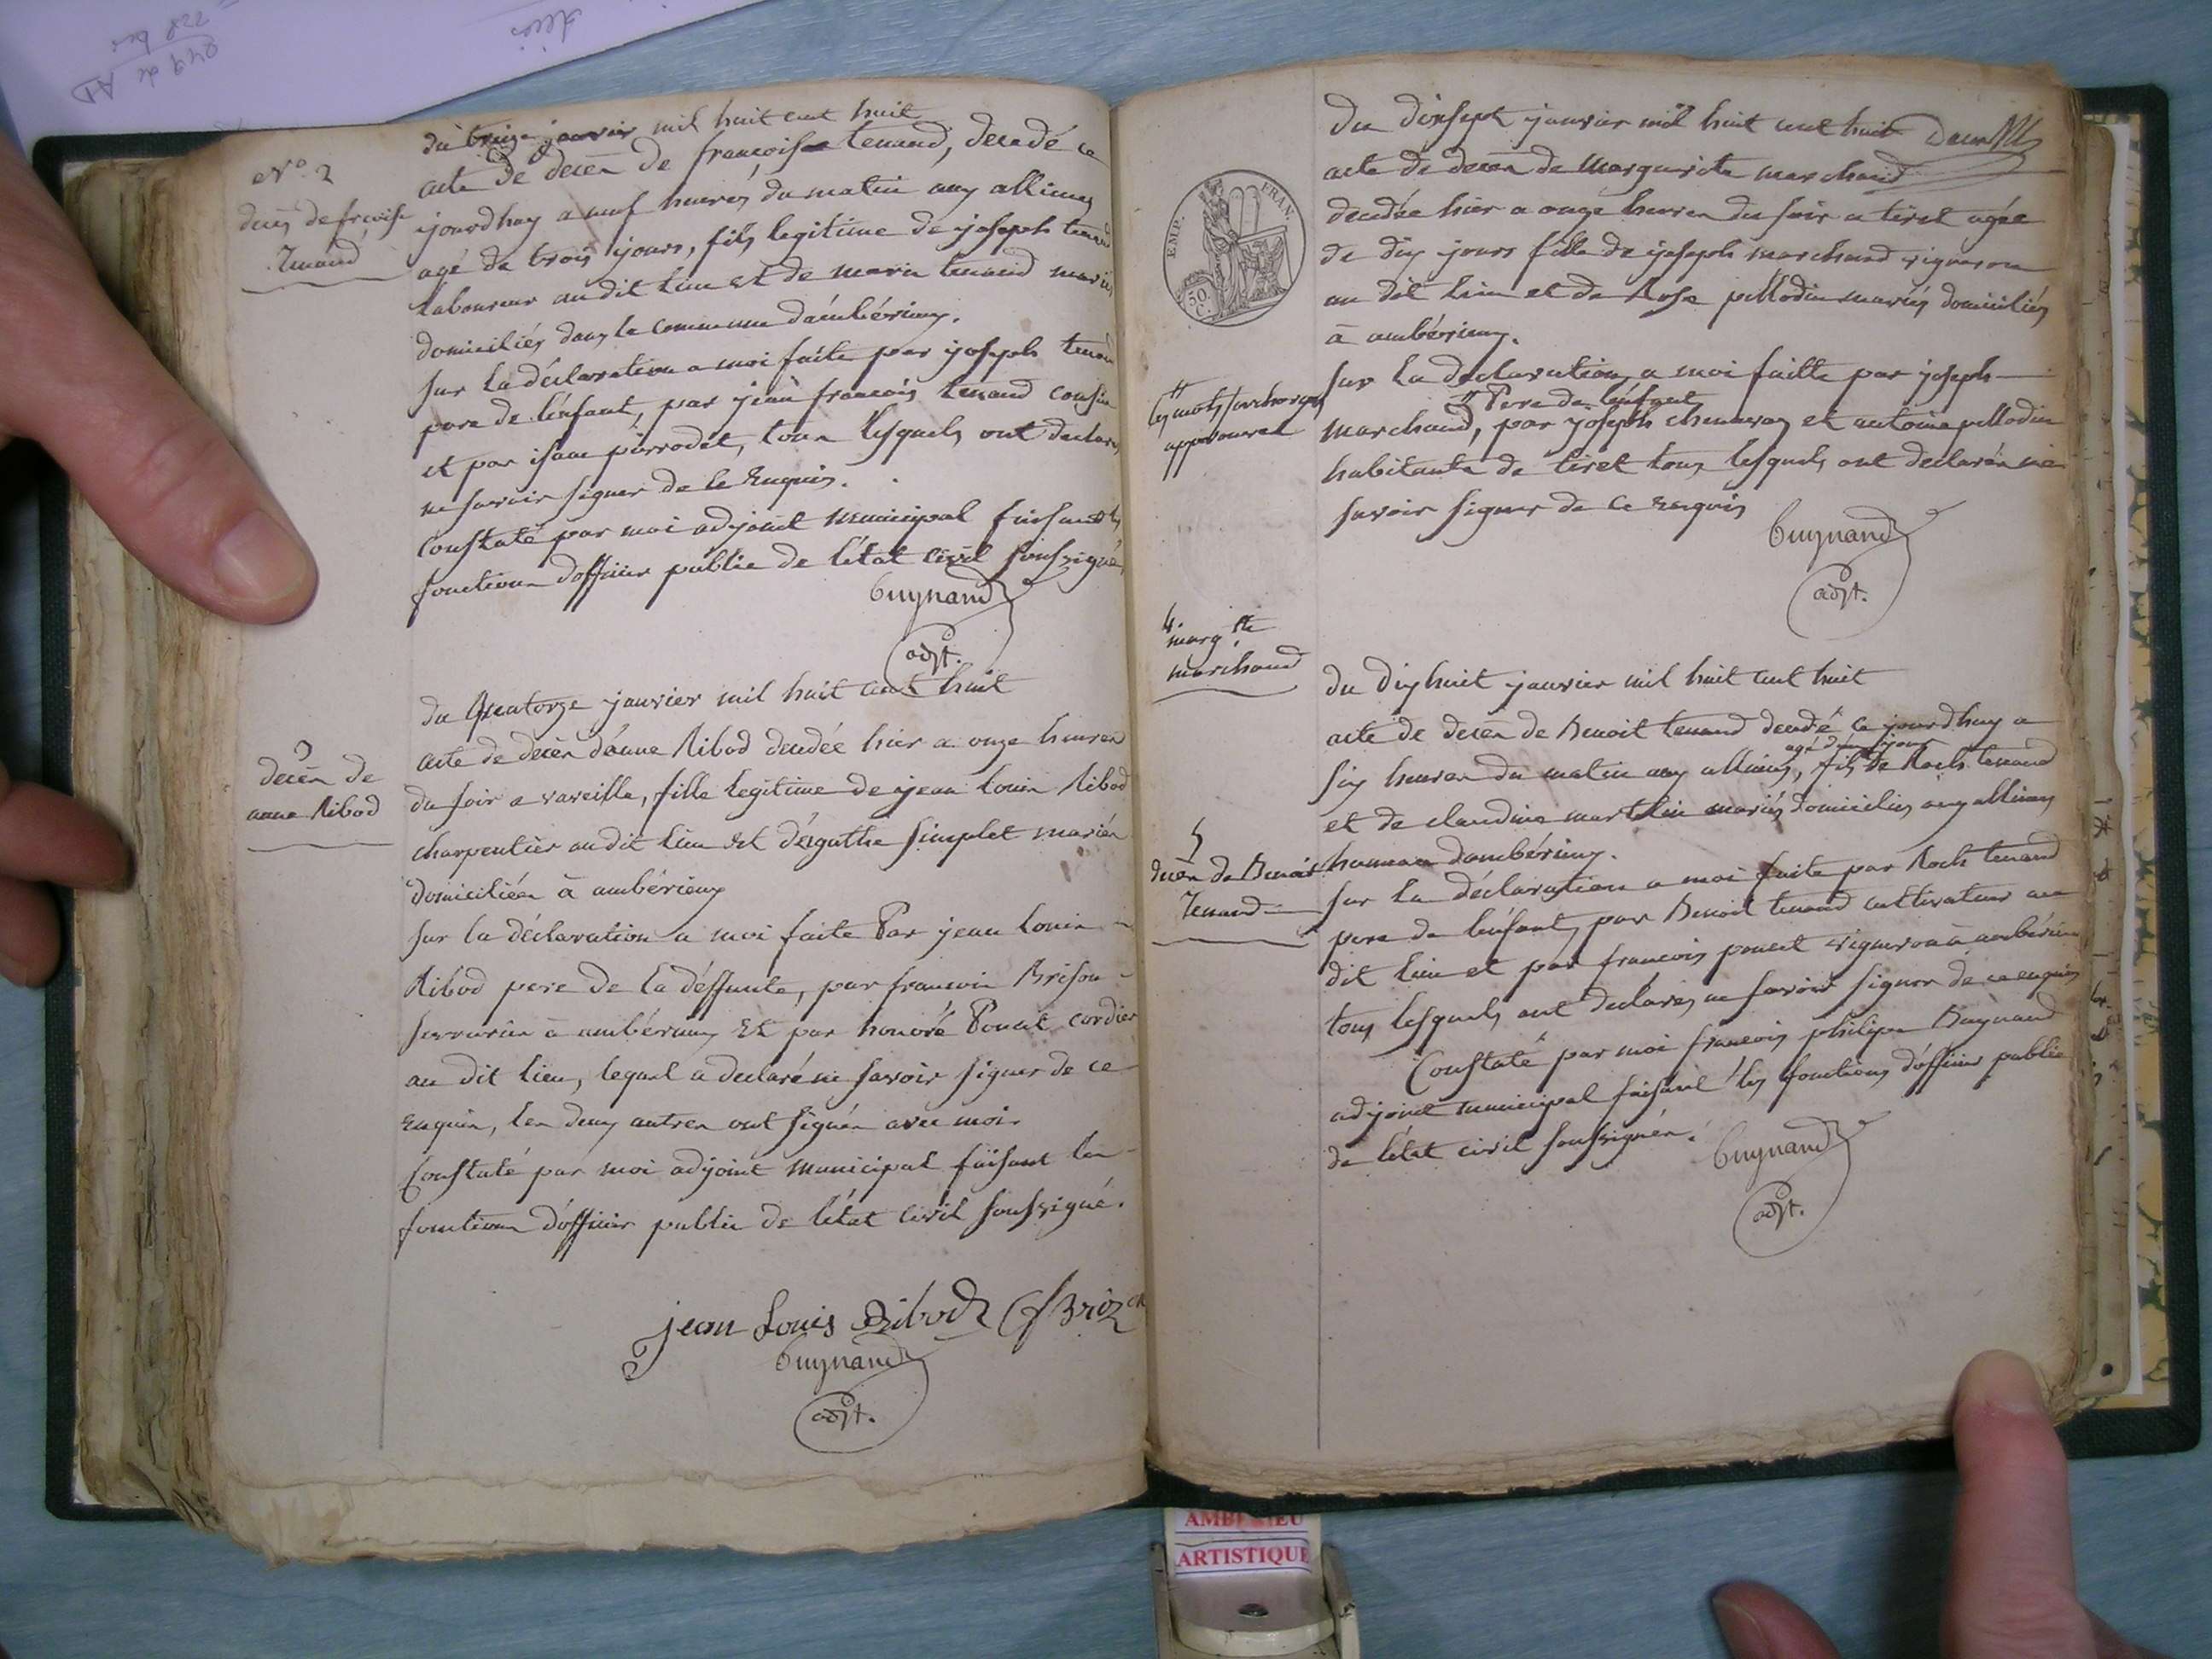 N° 2
décès de frçoise
Tenand
du treize janvier mil huit cent huit
acte de décès de francoise tenand, decedé ce
jourd'huy a neuf heures du matin aux allimes
agé de trois jours, fils legitime de joseph tenand
laboureur au dit lieu et de marie tenand mariés
domiciliés dans la commune d'ambérieux.
sur la déclaration a moi faite par joseph tenand
pere de l'énfant, par jean francois tenand cousin
et par pérrodét, tous lesquels ont declarés
ne savoir signer de ce Enquis.
Constaté par moi adjoint municipal faisant les
fonctions d'officier public de l'état civil soussigné,
Buynand
adjt.
3
décès de
anne Ribod
du Quatorze janvier mil huit cent huit
acte de décès d'anne Ribod decedée hier a onze heures
du soir a vareille, fille legitime de jean louis Ribod
charpentier au dit lieu Et d'ágathe simplet mariés
domiciliés à ambérieux
sur la déclaration a moi faite Par jean louis
Ribod pere de la déffunte, par francois Brison
serrurier à ambérieux Et par honoré Poncet cordier
au dit lieu, lequel a declaré ne savoir signer de ce
Enquis, les deux autres ont signés avec moi.
Constaté par moi adjoint municipal faisant les
fonctions d'officier public de l'état civil soussigné.
jean Louis Ribod
Buynand
adjt.
EMP. FRAN.
50 C.
du dixsept janvier mil huit cent huit
acte de décès de Marguerite marchand
decedée hier a onze heures du soir a tiret agée
de dix jours fille de joseph marchand vigneron
au dit lieu et de Rose pellodin mariés domiciliés
à ambérieux.
sur la declaration a moi faitte par joseph
# Pere de l'énfant
marchand, par joseph et antoine pellodin
habitants de tiret tous lesquels ont declarés ne
savoir signer de ce enquis
Buynand
adjt.
#
les mots surchargés
approuvés
4.
marg.te
marchand
du dix huit janvier mil huit cent huit
acte de décès de Benoit tenand decedé ce jourd'huy a
agé d'un jour
six heures du matin aux allimes, fils de Roch tenand
et de claudine martelin mariés domiciliés aux allimes
hameau d'ambérieux.
sur la déclaration a moi faite par Roch tenand
pere de l'énfant, par Benoit tenand cultivateur au
dit lieu et par francois poncet vigneron à ambérieux
tous lesquels ont declarés ne savoir signer de ce enquis
Constaté par moi francois philipe Buynand
adjoint municipal faisant les fonctions d'officier public
de l'état civil soussignés.
Buynand
adjt.
5
décès de Benoit
Tenand
AMBERIEU
ARTISTIQUE